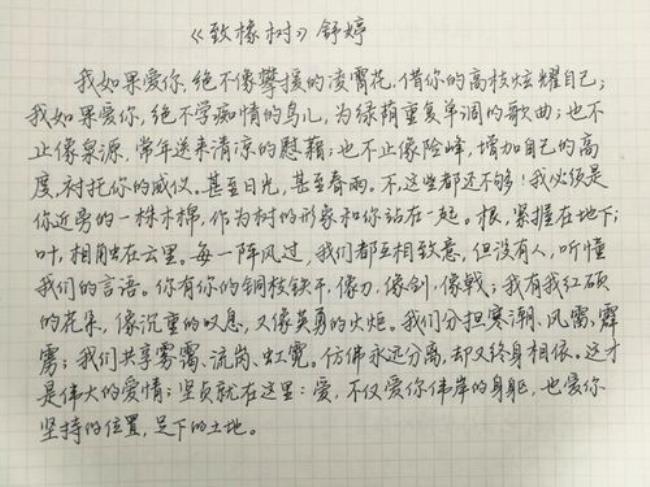 《致橡树》舒婷
我如果爱你,绝不像攀援的凌霄花,借你的高枝炫耀自己;
我如果爱你,绝不学痴情的鸟儿,为绿荫重复单调的歌曲;也不
止像泉源,常年送来清凉的慰藉;也不止像险峰,增加自己的高
度,衬托你的威仪。甚至日光,甚至春雨。不,这些都还不够!我必须是
你近旁的一株木棉,作为树的形象和你站在一起。根,紧握在地下;
叶,相触在云里。每一阵风过,我们都互相致意,但没有人,听懂
我们的言语。你有你的铜枝铁干,像刀,像剑,像戟;我有我红硕
的花朵,像沉重的叹息,又像英勇的火炬。我们分担寒潮、风雷、霹
雳;我们共享雾霭、流岚、虹霓。仿佛永远分离,却又终身相依。这才
是伟大的爱情;坚贞就在这里:爱,不仅爱你伟岸的身躯,也爱你
坚持的位置,足下的土地。